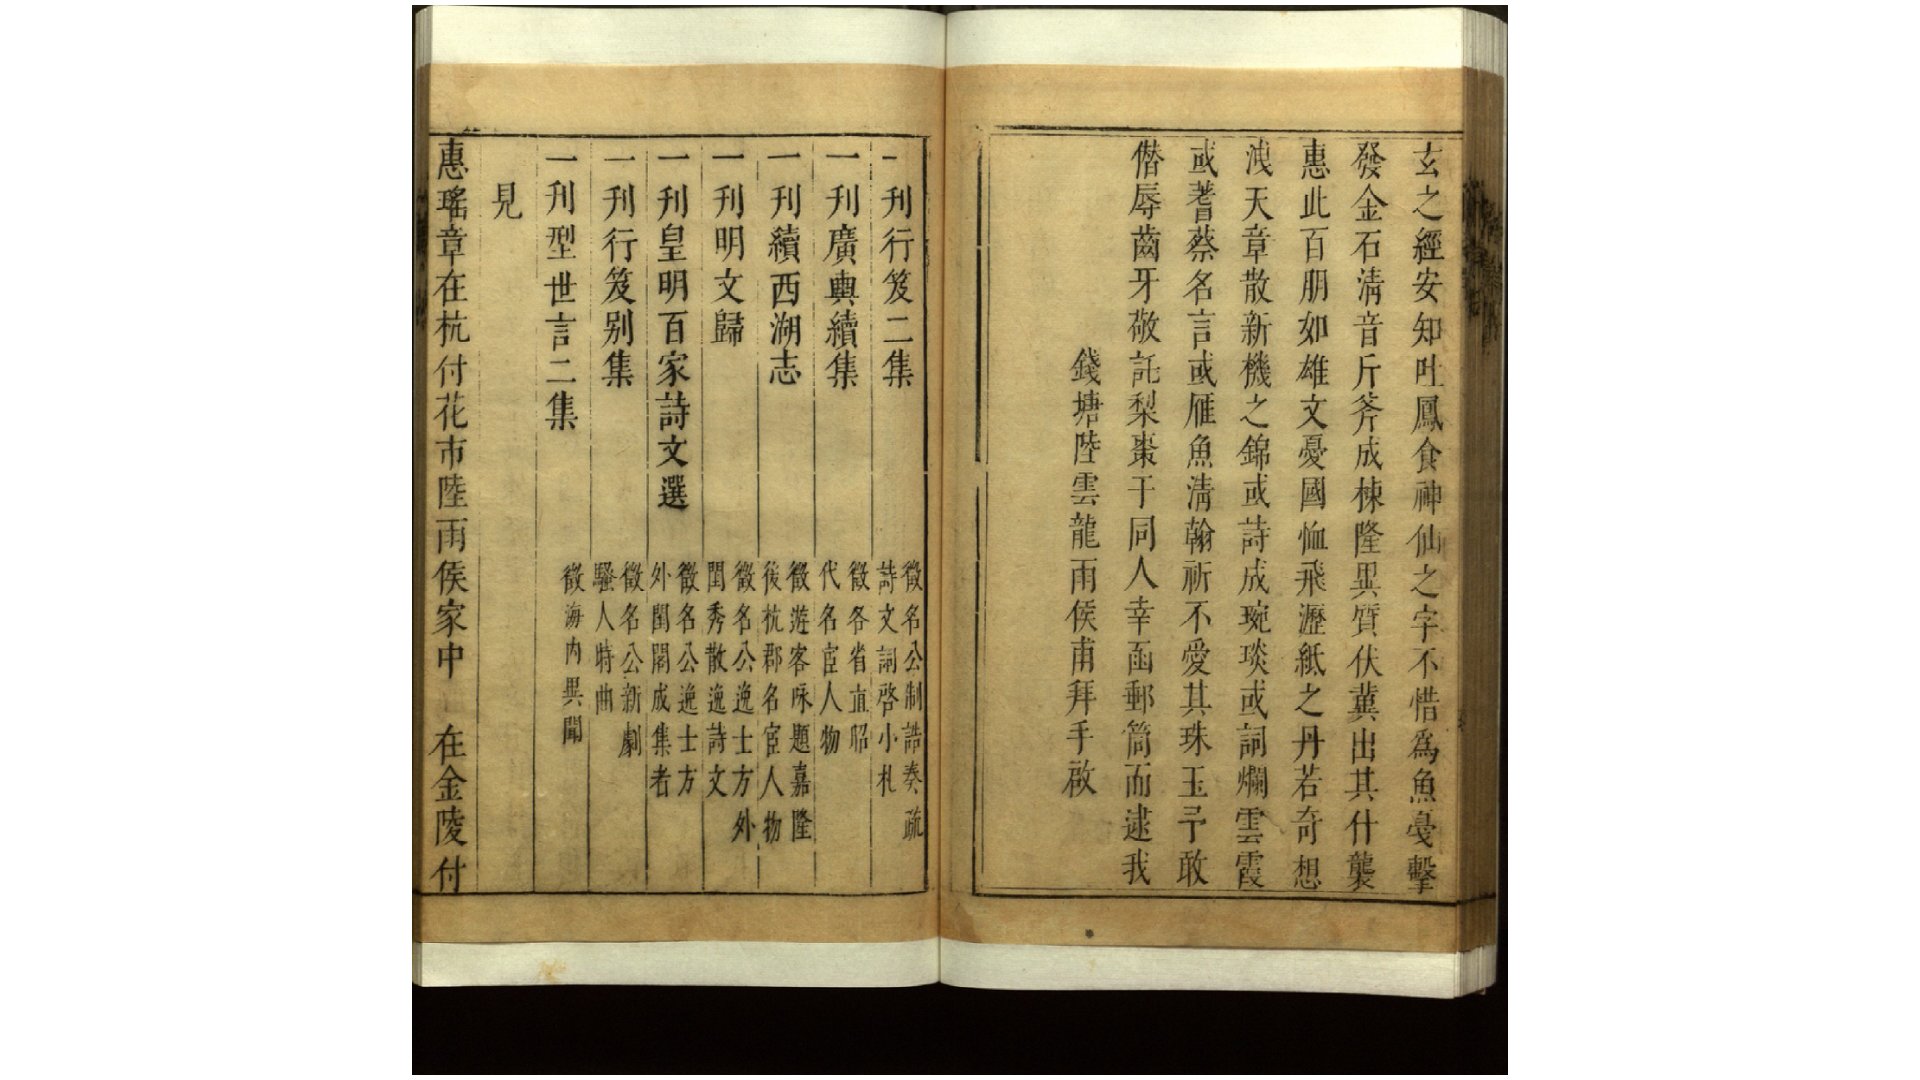 玄之經安知吐鳳食神仙之字不惜爲魚憂擊
發金石清音斤斧成棟隆異質伏冀出其什襲
惠此百朋如雄文憂國恤飛瀝紙之丹若奇想
洩天章散新機之錦或詩成琬琰或詞爛雲霞
或蓍蔡名言或雁魚清翰祈不愛其珠玉予敢
偕辱齒牙敬託梨棗于同人幸函郵筒而逮我
錢塘陸雲龍雨侯甫拜手啟
一刊行笈二集
徵名公制誥奏疏
詩文詞啓小札
一刊廣輿續集
徵各省直昭
代名宦人物
一刊續西湖志
徵遊客咏題嘉隆
後杭郡名宦人物
一刊明文歸
徵名公逸士方外
閨秀散逸詩文
一刊皇明百家詩文選
徵名公逸士方
外閨閣成集者
一刊行笈别集
徵名公新劇
騷人時曲
一刊型世言二集
徵海内異聞
見
惠瑤章在杭付花市陸雨侯家中 在金陵付